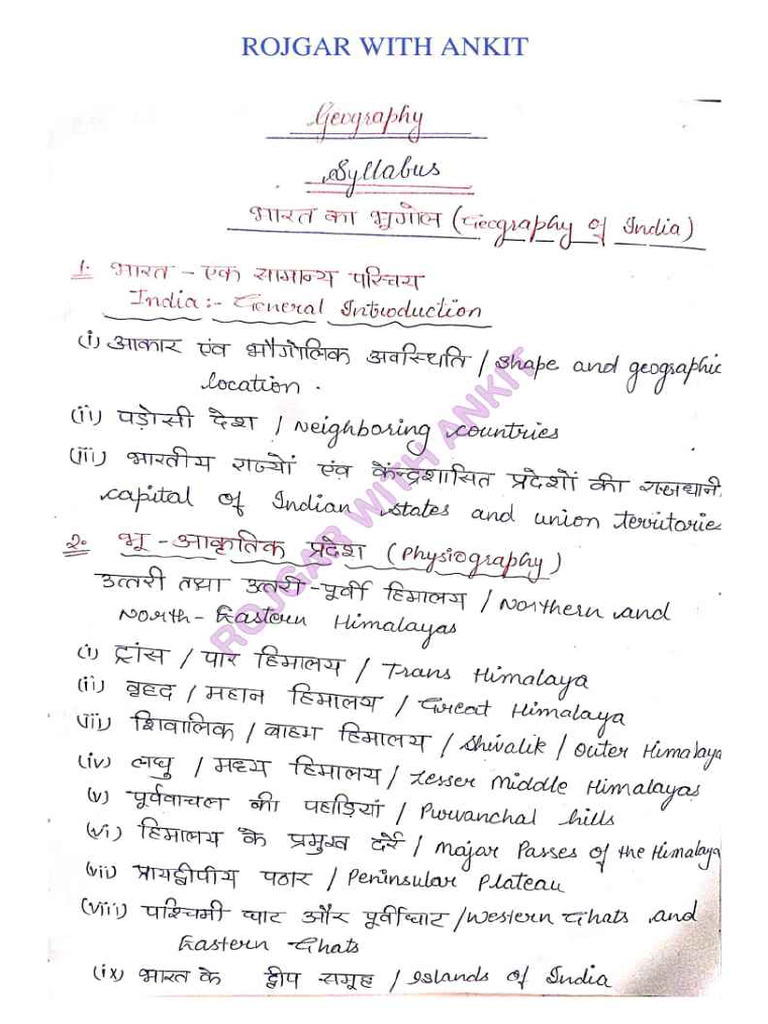 ROJGAR WITH ANKIT
Geography
Syllabus
भारत का भुगोल (Geography of India)
1. भारत - एक सामान्य परिचय
India:- General Introduction
(i) आकार एंव भौगोलिक अवस्थिति / Shape and geographic
location.
(ii) पड़ोसी देश / Neighboring countries
(iii) भारतीय राज्यों एंव केंन्द्रशासित प्रदेशों की राजधानी
capital of Indian states and union territorie
2. भू-आकृतिक प्रदेश (Physiography)
उत्तरी तथा उत्तरी-पूर्वी हिमालय / Northern and
North-Eastern Himalayas
(i) ट्रांस / पार हिमालय / Trans Himalaya
(ii) वृहद / महान हिमालय / Great Himalaya
(iii) शिवालिक / बाहम हिमालय / Shivalik / Outer Himalaya
(iv) लघु / मध्य हिमालय / Lesser Middle Himalayas
(v) पूर्ववाचल की पहाड़ियां / Purvanchal hills
(vi) हिमालय के प्रमुख दर्रे / Major Passes of the Himalaya
(vii) प्रायद्वीपीय पठार / Peninsular Plateau
(viii) पश्चिमी घाट और पूर्वीघाट / Western Ghats and
Eastern Ghats
(ix) भारत के द्वीप समूह / Islands of India
ROJGAR WITH ANKIT